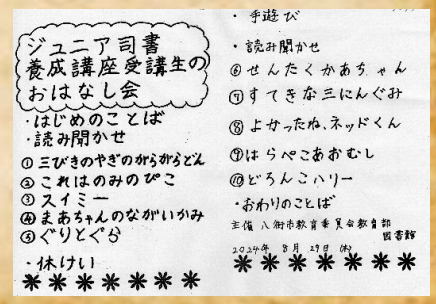 ジュニア司書
養成講座受講生の
おはなし会
・はじめのことば
・読み聞かせ
①三びきのやぎのがらがらどん
②これはのみのぴこ
③スイミー
④まあちゃんのながいかみ
⑤ぐりとぐら
・休けい
・手遊び
・読み聞かせ
⑥せんたくかあちゃん
⑦すてきな三にんぐみ
⑧よかったね、ネッドくん
⑨はらぺこあおむし
⑩どろんこハリー
・おわりのことば
主催 八街市教育委員会教育部
図書館
2024年 8月 29日 (木)